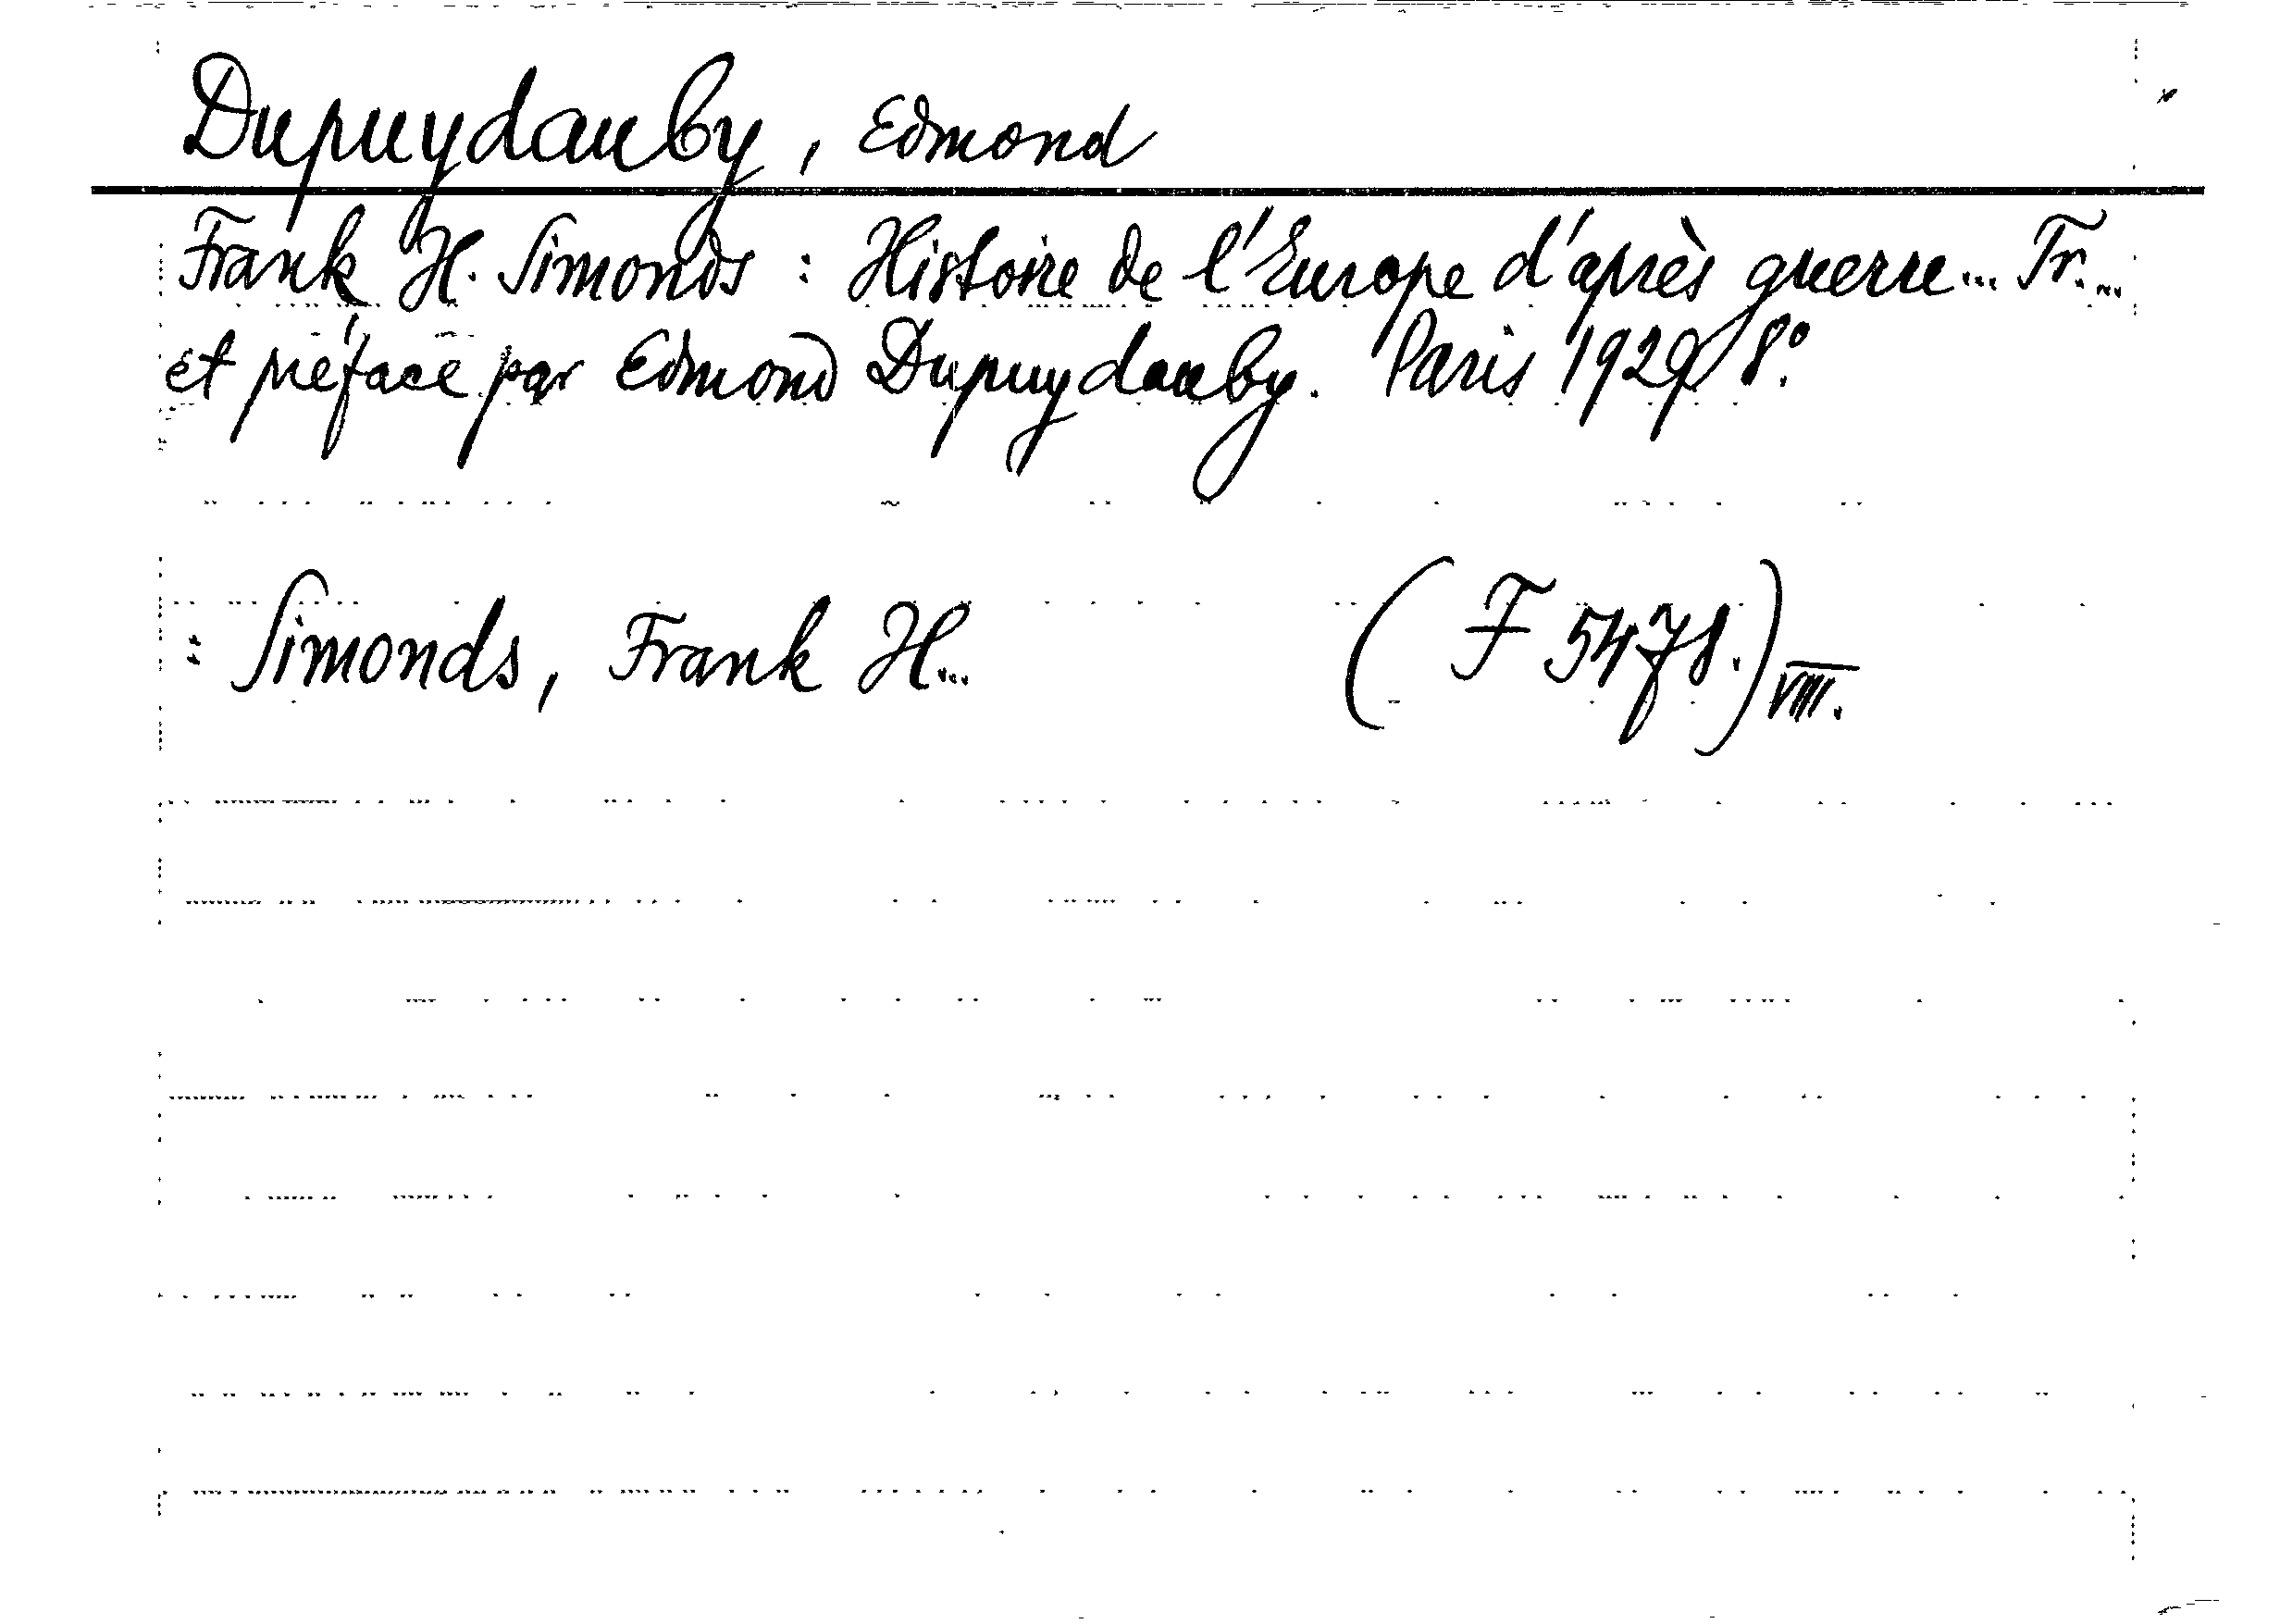 Dupuydauby, Edmond
Frank H. Simonds : Histoire de l'Europe d'après guerre... Tr....
et préface par Edmond Dupuydauby. Paris 1929 8°.
: Simonds, Frank H... (F 5478.) VIII.